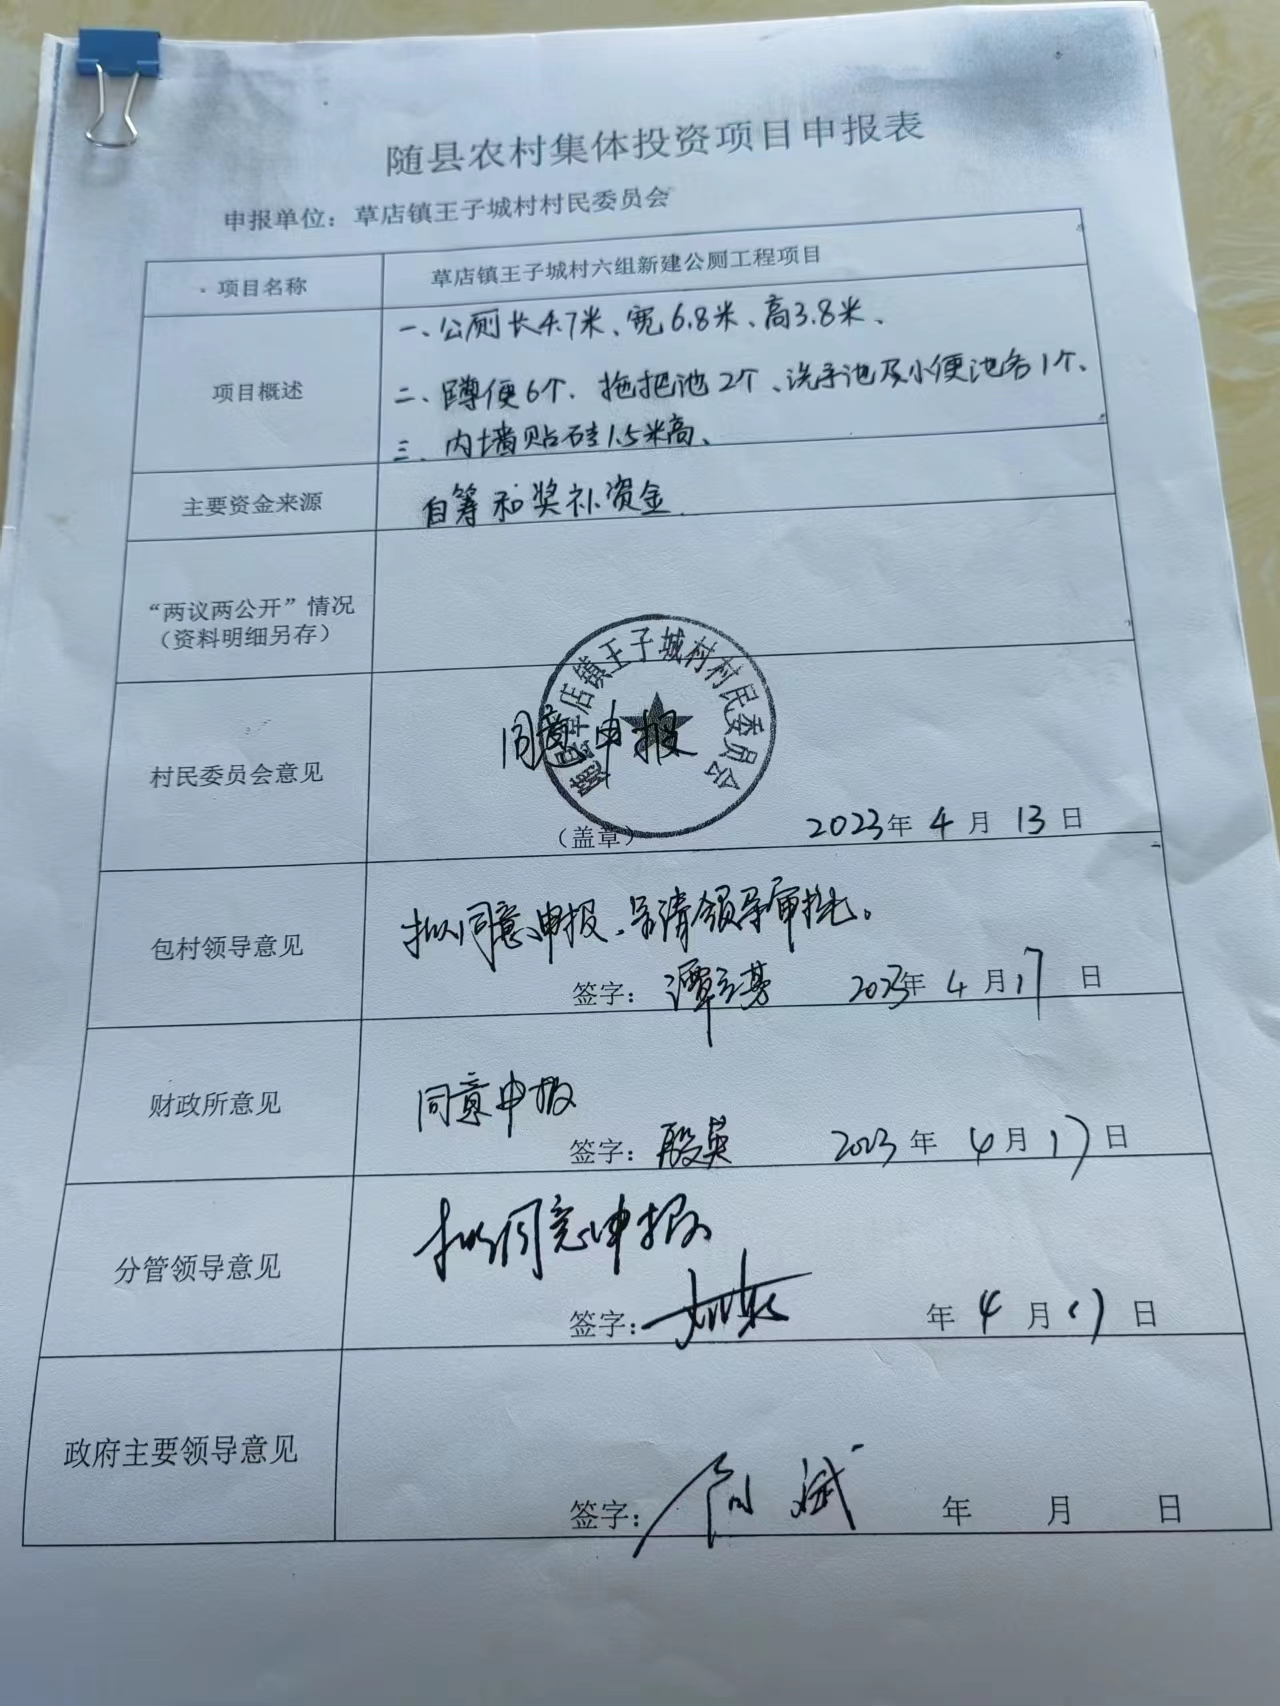 随县农村集体投资项目申报表
申报单位：草店镇王子城村村民委员会
项目名称
草店镇王子城村六组新建公厕工程项目
项目概述
一、公厕长4.7米、宽6.8米、高3.8米、
二、蹲便6个、拖把池2个、洗手池及小便池各1个、
三、内墙贴砖1.5米高、
主要资金来源
自筹和奖补资金
“两议两公开”情况
（资料明细另存）
村民委员会意见
随县草店镇王子城村村民委员会
同意申报
（盖章）
2023年4月13日
包村领导意见
拟同意申报，呈请领导审批。
签字： 2023年4月17日
财政所意见
同意申报
签字：殷英 2023年4月17日
分管领导意见
拟同意申报
签字： 年4月17日
政府主要领导意见
签字： 年 月 日